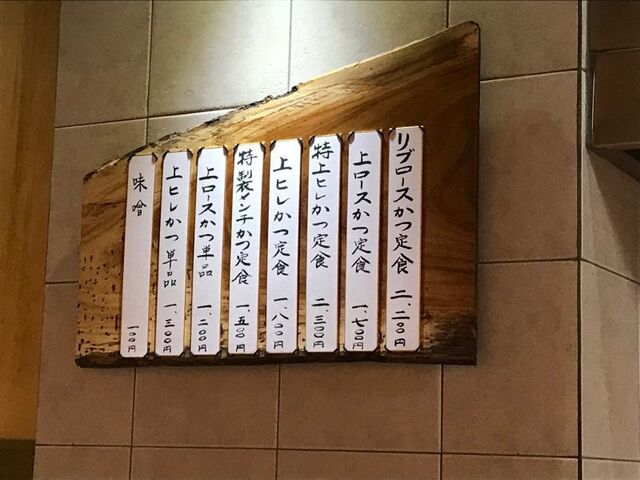 リブロースかつ定食 二、二〇〇円
上ロースかつ定食 一、七〇〇円
特上ヒレかつ定食 二、三〇〇円
上ヒレかつ定食 一、八〇〇円
特製メンチかつ定食 一、五〇〇円
上ロースかつ単品 一、二〇〇円
上ヒレかつ単品 一、三〇〇円
味噌 一〇〇円